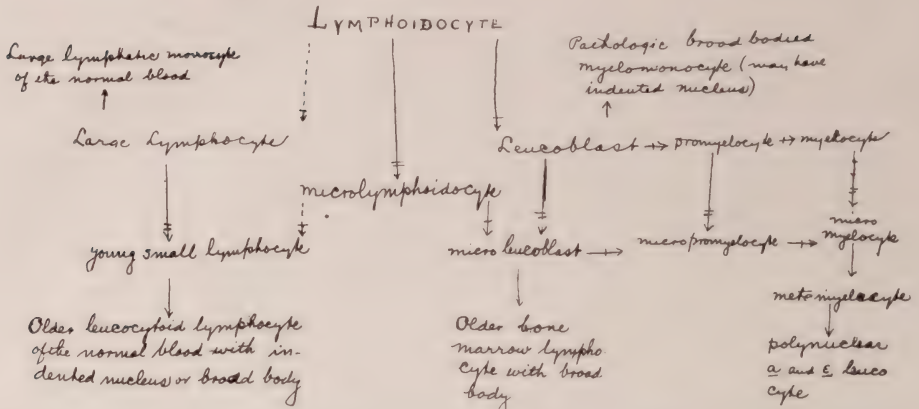 LYMPHOIDOCYTE
Large lymphatic monocyte
of the normal blood
Pathologic broad bodied
myelomonocyte (may have
indented nucleus)
Large Lymphocyte
Leucoblast
promyelocyte
myelocyte
microlymphoidocyte
young small lymphocyte
micro leucoblast
micropromyelocyte
micro
myelocyte
metamyelocyte
Older leucocytoid lymphocyte
of the normal blood with in-
dented nucleus or broad body
Older bone
marrow lympho
cyte with broad
body
polynuclear
a and ε leuco
cyte